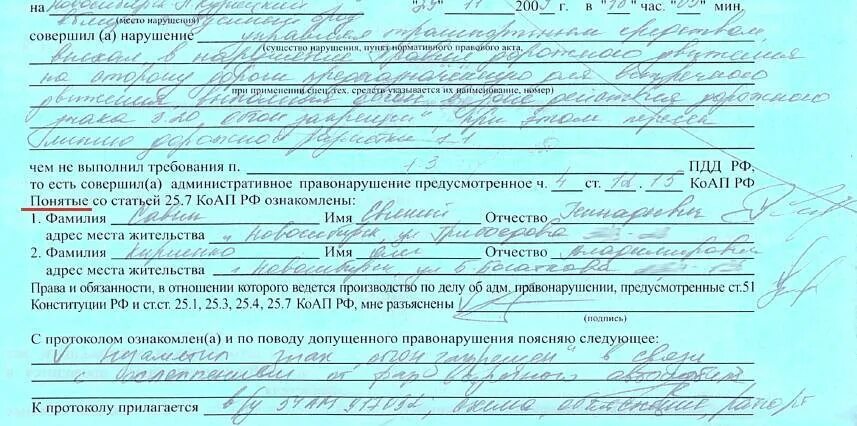 на Новосибирск, п. "29" 11 2009 г. в "18" час. "05" мин.
(место нарушения)
совершил (а) нарушение управляя транспортным средством
(существо нарушения, пункт нормативного правового акта,
выехал, в нарушение Правил дорожного движения
на сторону дороги предназначенную для встречного
при применении спец. тех. средств указывается их наименование, номер)
движения, выполнил обгон в зоне действия дорожного
знака 3.20 "обгон запрещен" при этом пересек
линию дорожной разметки 1.1
чем не выполнил требования п. 1.3 ПДД РФ,
то есть совершил(а) административное правонарушение предусмотренное ч. 4 ст. 12.15 КоАП РФ
Понятые со статьей 25.7 КоАП РФ ознакомлены:
1. Фамилия Савин Имя Евгений Отчество Геннадьевич
адрес места жительства г. Новосибирск, ул Грибоедова
2. Фамилия Кириенко Имя Отчество Владимирович
адрес места жительства г. Новосибирск, ул Б. Богаткова
Права и обязанности, в отношении которого ведется производство по делу об адм. правонарушении, предусмотренные ст.51
Конституции РФ и ст.ст. 25.1, 25.3, 25.4, 25.7 КоАП РФ, мне разъяснены
(подпись)
С протоколом ознакомлен(а) и по поводу допущенного правонарушения поясняю следующее:
Не заметил знак "обгон запрещен" в связи
с ослеплением от фар встречного автомобиля
К протоколу прилагается в/у 54АМ схема, объяснения, рапорт